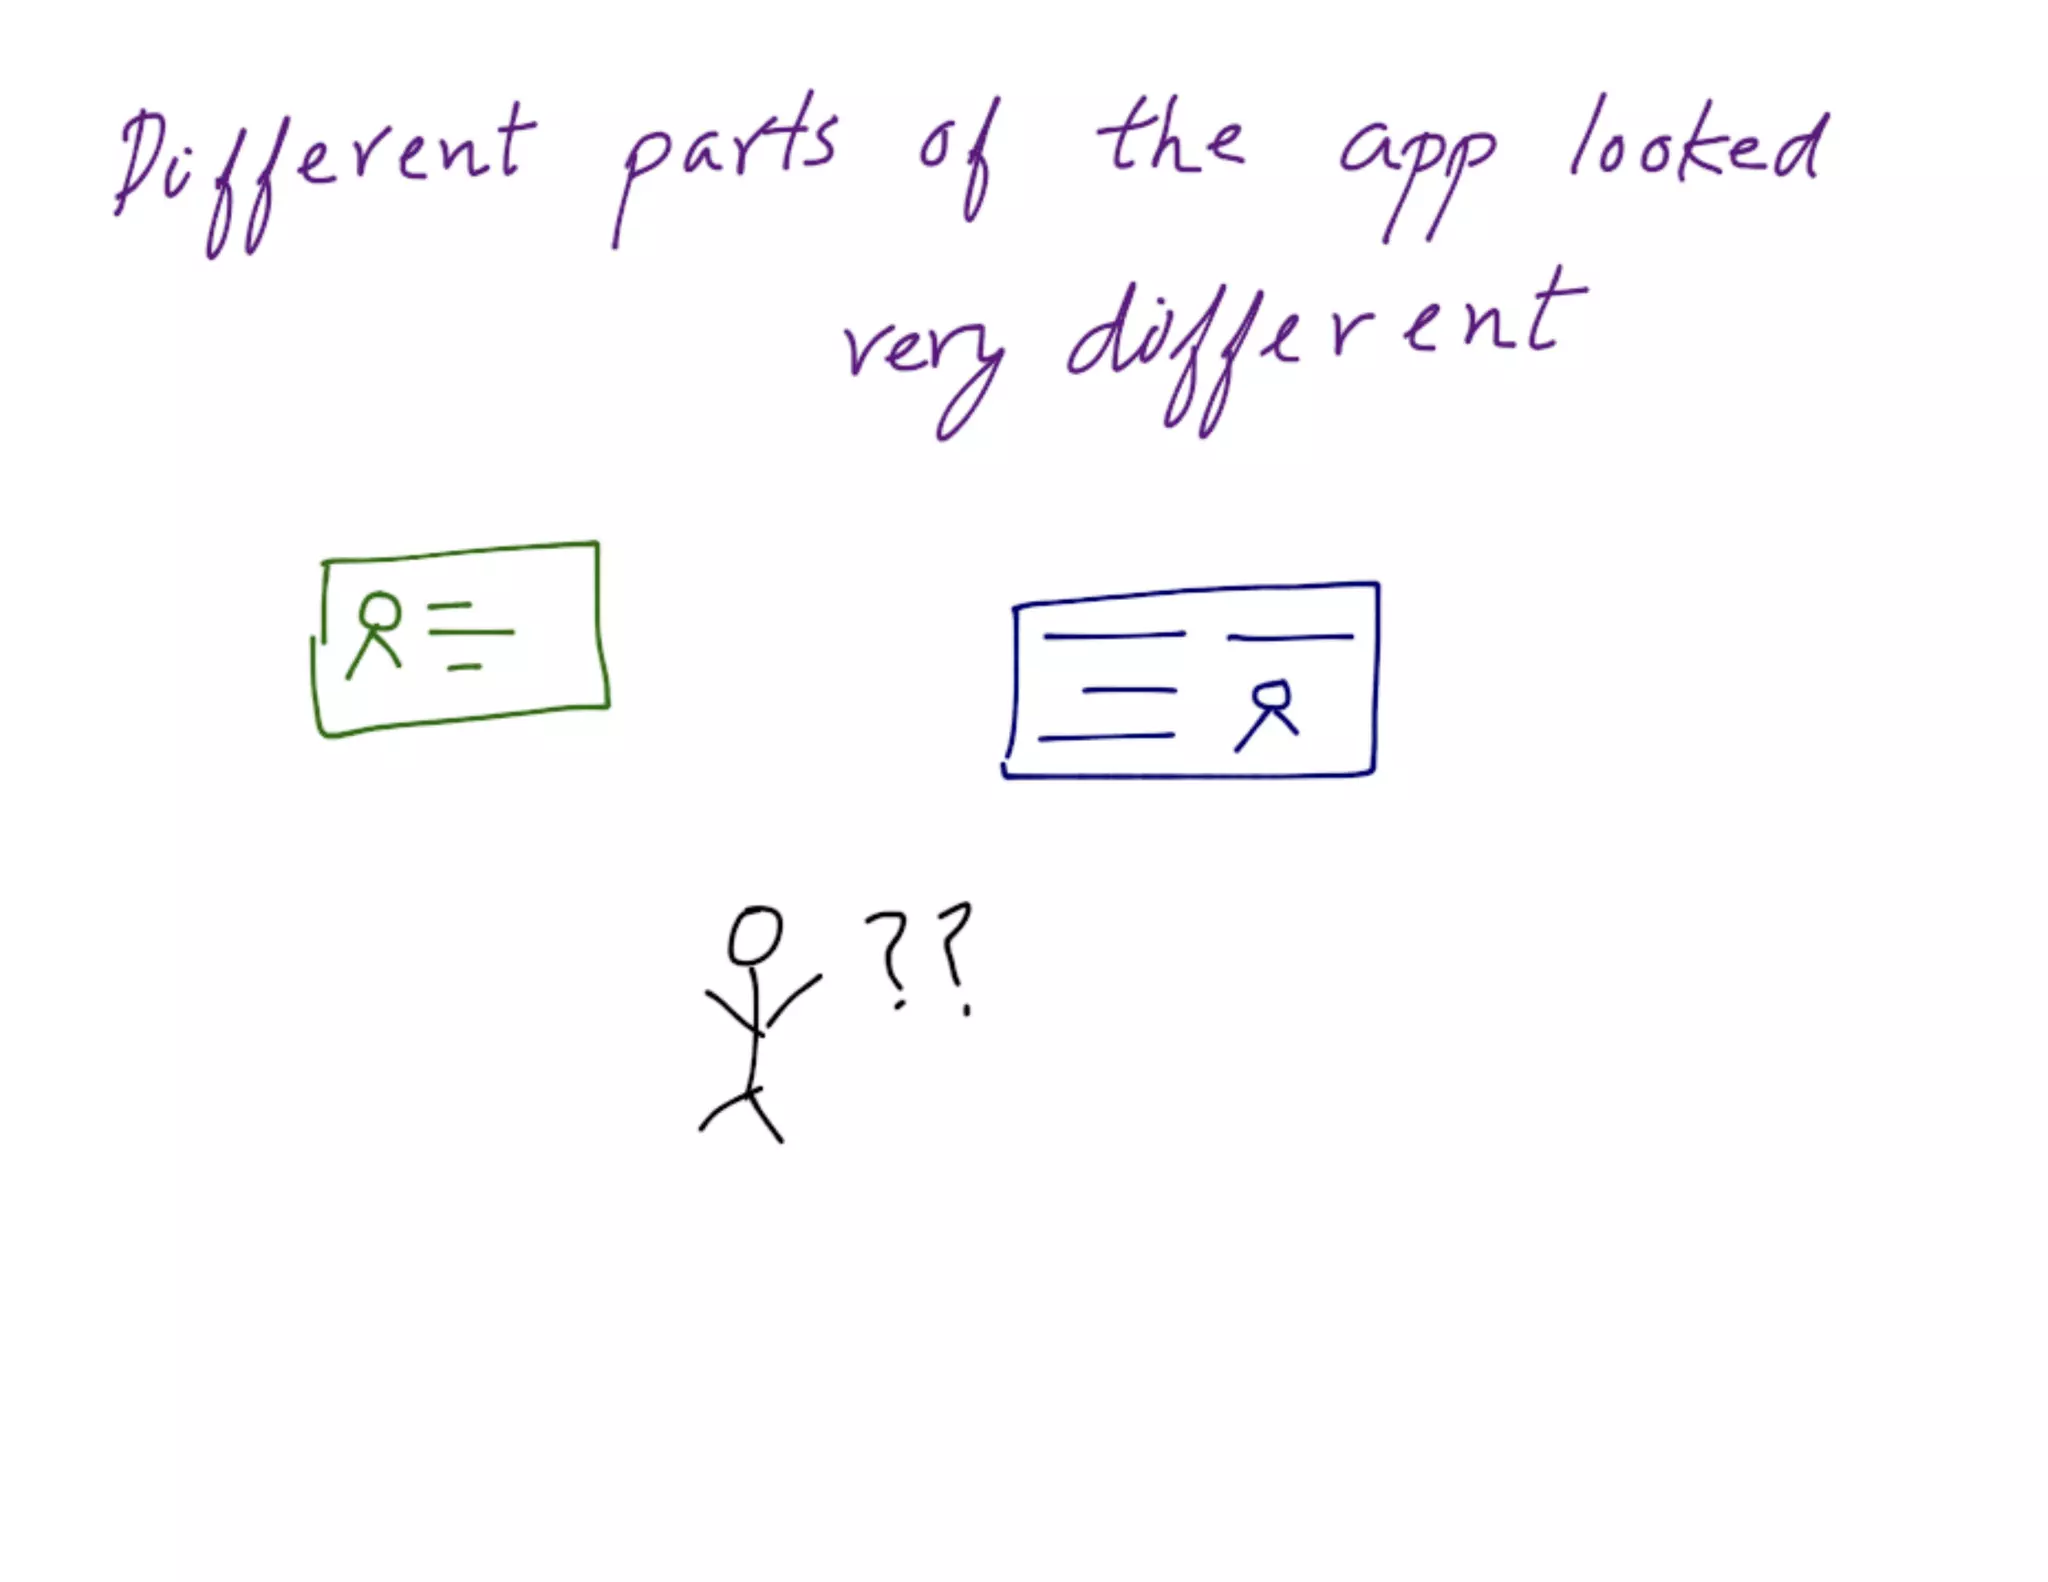 Different parts of the app looked
very different
??